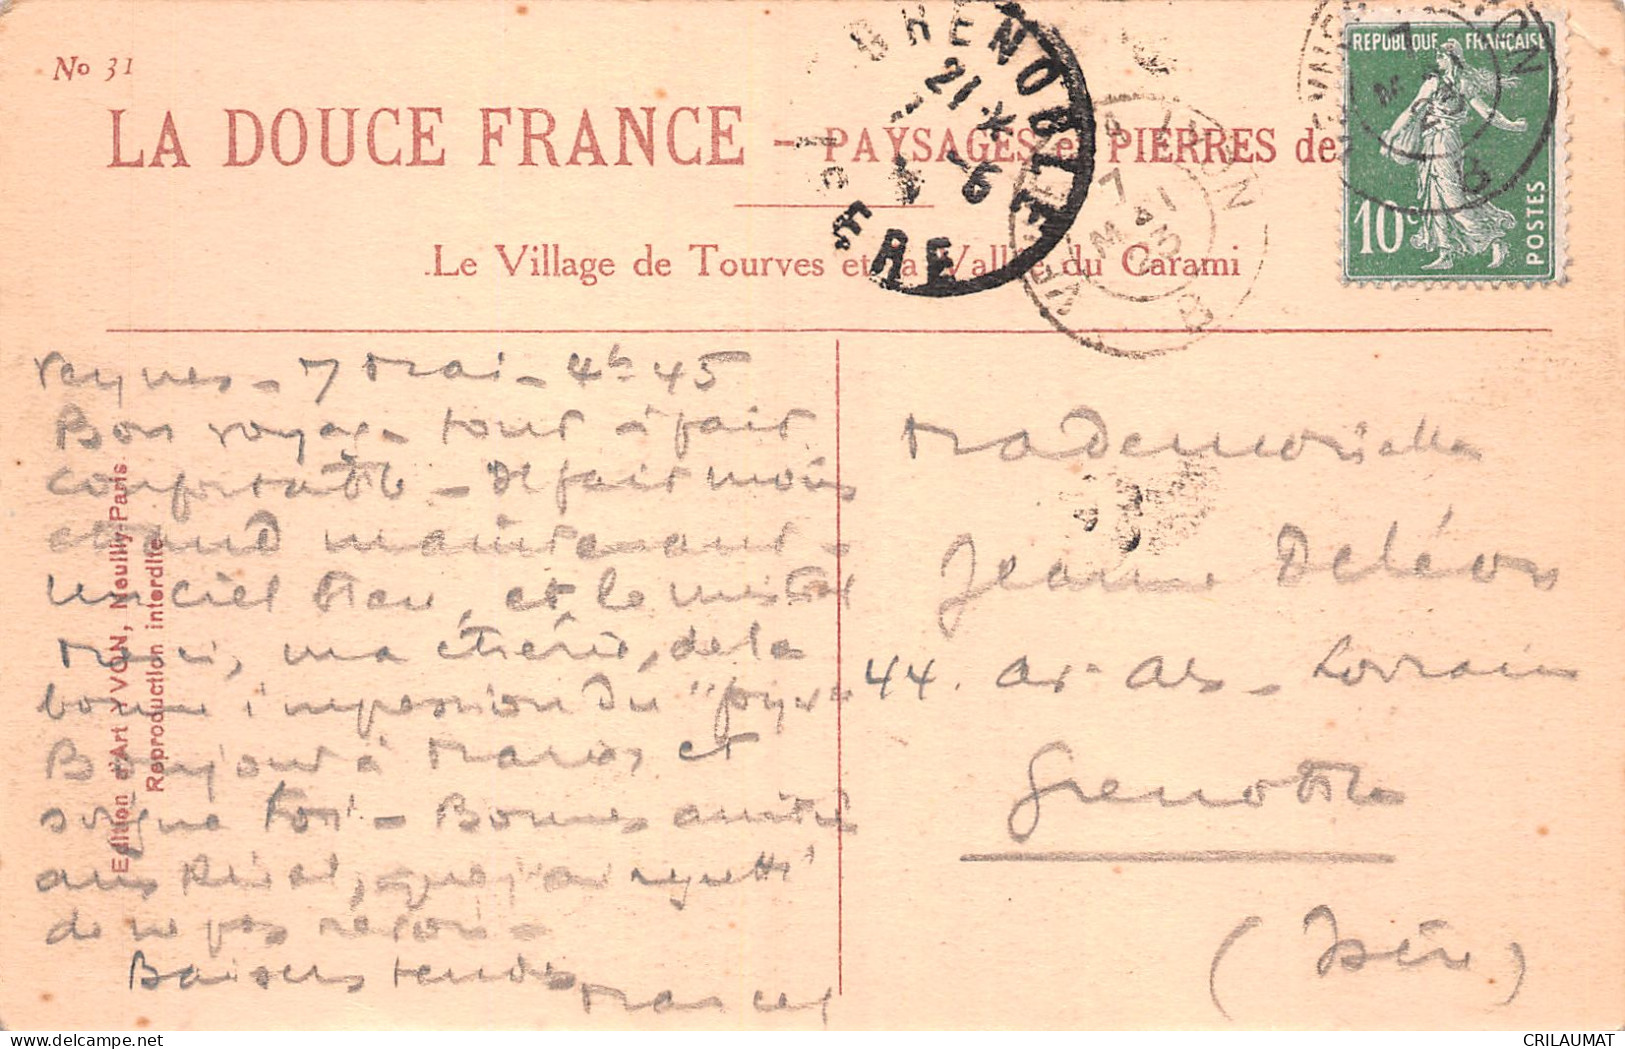 No 31
LA DOUCE FRANCE - PAYSAGES et PIERRES de
Le Village de Tourves et la Vallée du Carami
GRENOBLE
21 *
5
ISERE
7
MAI
REPUBLIQUE FRANÇAISE
10c
POSTES
Edition d'Art YVON, Neuilly-Paris
Reproduction interdite
Veynes - 7 Mai - 4h 45
Bon voyage tout à fait
confortable - Il fait moins
chaud maintenant -
Un ciel bleu, et le mistral
Merci, ma chérie, de la
bonne impression du
Bonjour à et
soigne toi - Bonnes amitiés
aux que j'ai regretté
de ne pas revoir -
Baisers tendres
Marcel
Mademoiselle
Jeanne
44. Av. Als - Lorraine
Grenoble
(Isère)
CRILAUMAT